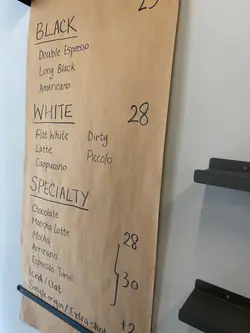 25
BLACK
Double Espresso
Long Black
Americano
WHITE 28
Flat White Dirty
Latte Piccolo
Cappucino
SPECIALTY
Chocolate
Matcha Latte
Mocha 28
Affricano
Espresso Tonic 30
Iced/Oat
Single Origin/Extra-shot +2